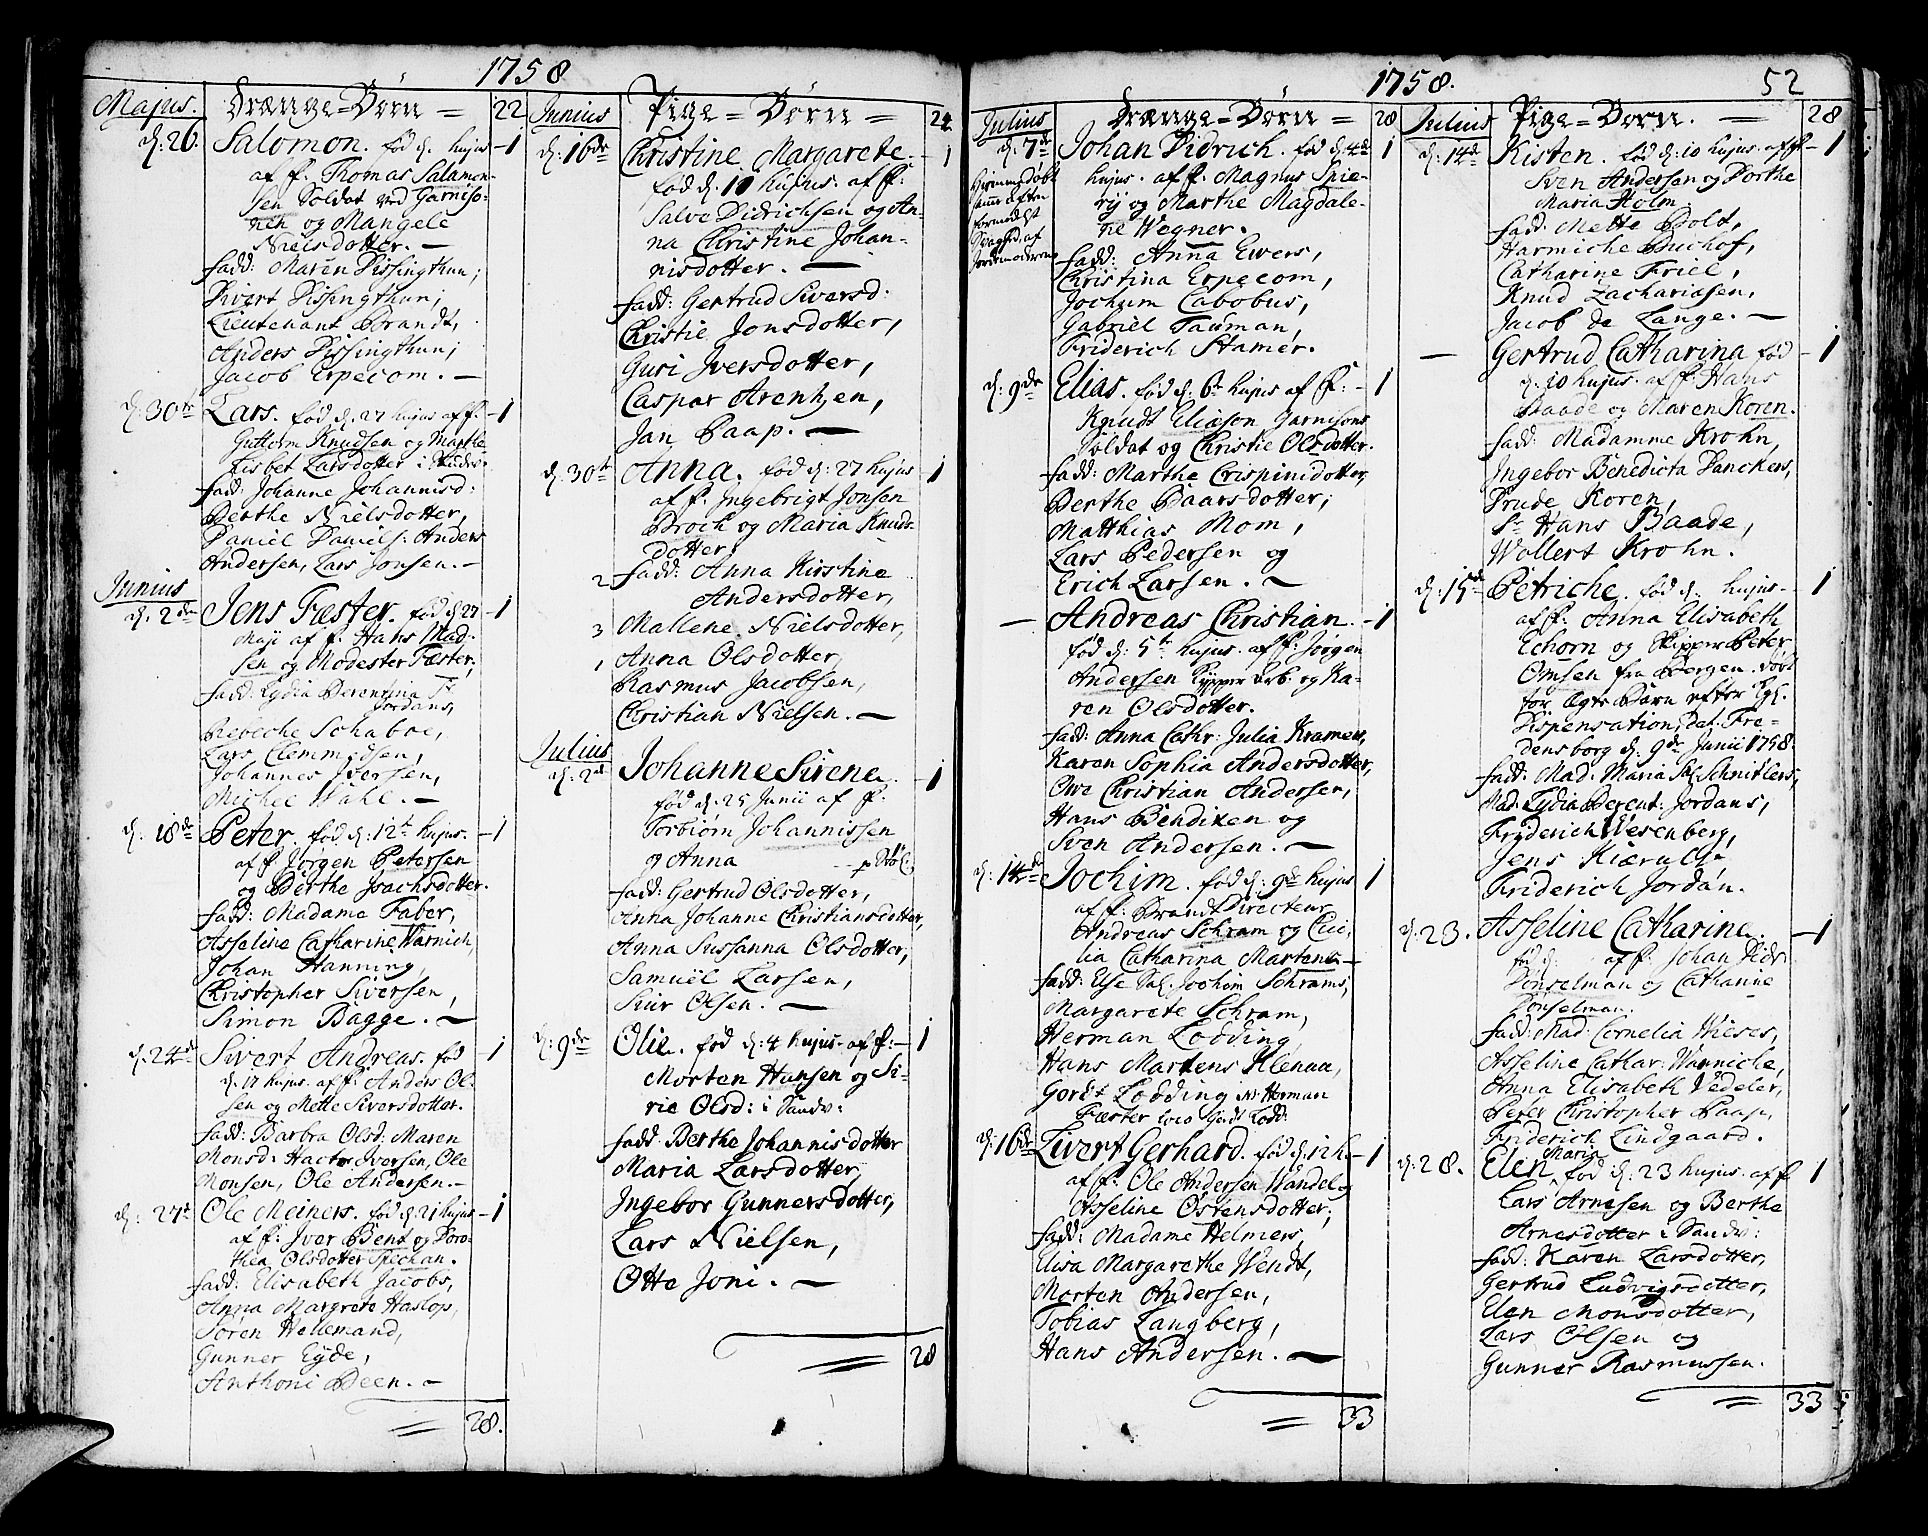 1758
Majus. Drænge-Børn = 22
d: 26. Salomon. fød d. hujus -1
af F. Thomas Salamon-
sen Soldat ved Garniso-
nen og Mangele
Nielsdotter. —
fadd: Maren Dissingthun;
Sivert Dissingthun;
Lieutenant Brandt,
Anders Dissingthun;
Jacob Erpecom. —
d: 30te Lars. fød d. 27 hujus af F. -1
Gutholm Knudsen og Marthe
Lisbet Larsdotter i
fadd: Johanne Johannisd:
Berthe Nielsdotter,
Daniel Daniels: Anders
Andersen, Lars Jonsen. —
Junius
d: 2de Jens Fæster. fød d 27 -1
Maji af F. Hans Mad-
sen og Modester Fæster,
fadd: Lydia Berentina Fr
Jordans,
Rebeche Schaboe,
Lars Clemmedsen,
Johannes Iversen,
Michel Wahl. —
d: 18de Peter. fød d: 12te hujus. -1
af F. Jörgen Petersen
og Berthe Isachsdotter.
fadd: Madame Faber,
Asseline Catharine Warnich,
Johan Hanning,
Christopher Siversen,
Simon Bagge. —
d: 24de Sivert Andreas. fød -1
d. 17 hujus. af F. Anders Ol-
sen og Mette Siversdotter.
fadd: Barbra Olsd: Maren
Monsd: Hactor Iversen, Ole
Monsen, Ole Andersen. —
d: 27de Ole Meiners. fød d. 21 hujus -1
af F. Iver Bent og Doro-
thea Olsdotter Spichan.
fadd: Elisabeth Jacobs,
Anna Margrete Haslop,
Sören Hellemand,
Gunner Eyde,
Anthoni Been. —
= 28.
Junius Pige-Börn = 24
d: 16de Christine Margarete. -1
fød d. 11 hujus. af F:
Salve Didrichsen og An-
na Christine Johan-
nisdotter. —
fadd: Gertrud Siversd:
Christie Jonsdotter,
Guri Iversdotter,
Caspar Arentzen,
Jan Paap. —
d: 30te Anna. fød d: 27 hujus -1
af F. Ingebrigt Jonsen
Broch og Maria Knuds-
dotter.
2 fadd: Anna Kirstine
Andersdotter,
3 Mallene Nielsdotter,
1 Anna Olsdotter,
Rasmus Jacobsen,
Christian Nielsen. —
Julius
d: 2de Johanne Sirene. -1
fød d. 25 Junii af F:
Torbiörn Johannissen
og Anna
fadd: Gertrud Olsdotter,
Anna Johanne Christiansdotter,
Anna Sussanna Olsdotter,
Samuël Larsen,
Siur Olsen. —
d: 9de Olie. fød d: 4 hujus. af F: -1
Morten Hansen og Si-
rie Olsd: i Sandv:
fadd: Berthe Johannisdotter
Maria Larsdotter,
Ingebor Gunnersdotter,
Lars Nielsen,
Otte Joni. —
= 28
1758. 52
Julius Drænge-Börn = 28
d: 7de Johan Didrich. fød d. 4de 1
hujus. af F. Magnus Spie-
rij og Marthe Magdale-
ne Wegner.
Hiemmedøbt
samme aften
formedelst
Svaghed. af
Jordemoderen
fadd: Anna Evers,
Christina Erpecom,
Jochum Cabobus,
Gabriel Tauman,
Friderich Stamer.
d: 9de Elias. fød d. 6te hujus af F: -1
Knudt Eliason Garnisons
Soldat og Christie Olsdotter.
fadd: Marthe Crispinidotter,
Berthe Baarsdotter;
Matthias Mom,
Lars Pedersen og
Erich Larsen. —
— Andreas Christian. -1
fød d: 5te hujus. af F: Jørgen
Andersen og Ka-
ren Olsdotter.
fadd: Anna Cathr: Julia Kramers,
Karen Sophia Andersdotter,
Owe Christian Andersen,
Hans Bendixen og
Sven Andersen. —
d: 14de Jochim. fød d: 9de hujus 1
af F: Brandt Directeur
Andreas Schram og Ceci,
lia Catharina Martens —
fadd: Else Sal. Jochim Schrams,
Margarete Schram,
Herman Lodding,
Hans Martens Klenau,
Gordt Lodding
Herman
Fæster
d: 16de Livert Gerhard. fød d: 12 h. -1
af F: Ole Andersen Wandel og
Asseline Östensdotter,
fadd: Madame Helmers,
Elisa Margarethe Wendt,
Morten Andersen,
Tobias Langberg,
Hans Andersen. —
= 33
Julius Pige-Börn. — 28
d: 14de Kisten. fød d: 10 hujus. af F. -1
Sven Andersen og Dorthe
Maria Holm
fadd: Mette Bolt,
Harmiche Bischof,
Catharine Friel,
Knud Zachariasen,
Jacob de Lange. —
— Gertrud Catharina fød -1
d: 10 hujus. af F: Hans
Baade og Maren Koren.
fadd: Madamme Krohn,
Ingebor Benedicta Danckers,
Drude Koren,
Sr Hans Baade,
Wollert Krohn.
d: 15de Petriche. fød d: hujus- 1
af F. Anna Elisabeth
Echorn og Skipper Peter
Omsen fra Bergen. døbt
for Ægte Barn efter Kgl.
Dispensation, dat. Fre-
densborg d: 9de Junii 1758.
fadd: Mad. Maria Sal. Schnitlers,
Mad: Lydia Berent: Jordans,
Fryderich Wesenberg,
Jens Kiærulf,
Friderich Jordan.
d: 23. Asseline Catharine. -1
fød d: af F: Johan Didr
Dönselman og Catharine
Dönselman.
fadd: Mad: Cornelia Wieses,
Asseline Cathar: Warniche,
Anna Elisabeth Vedeler,
Peter Christopher Paap,
Friderich Lindgaard.
d: 28. Elen Maria, fød d: 23 hujus. af F. 1
Lars Arnesen og Berthe
Arnesdotter i Sandv:
fadd: Karen Larsdotter,
Gertrud Ludvigsdotter,
Elen Monsdotter,
Lars Olsen og
Gunner Rasmussen.
= 33